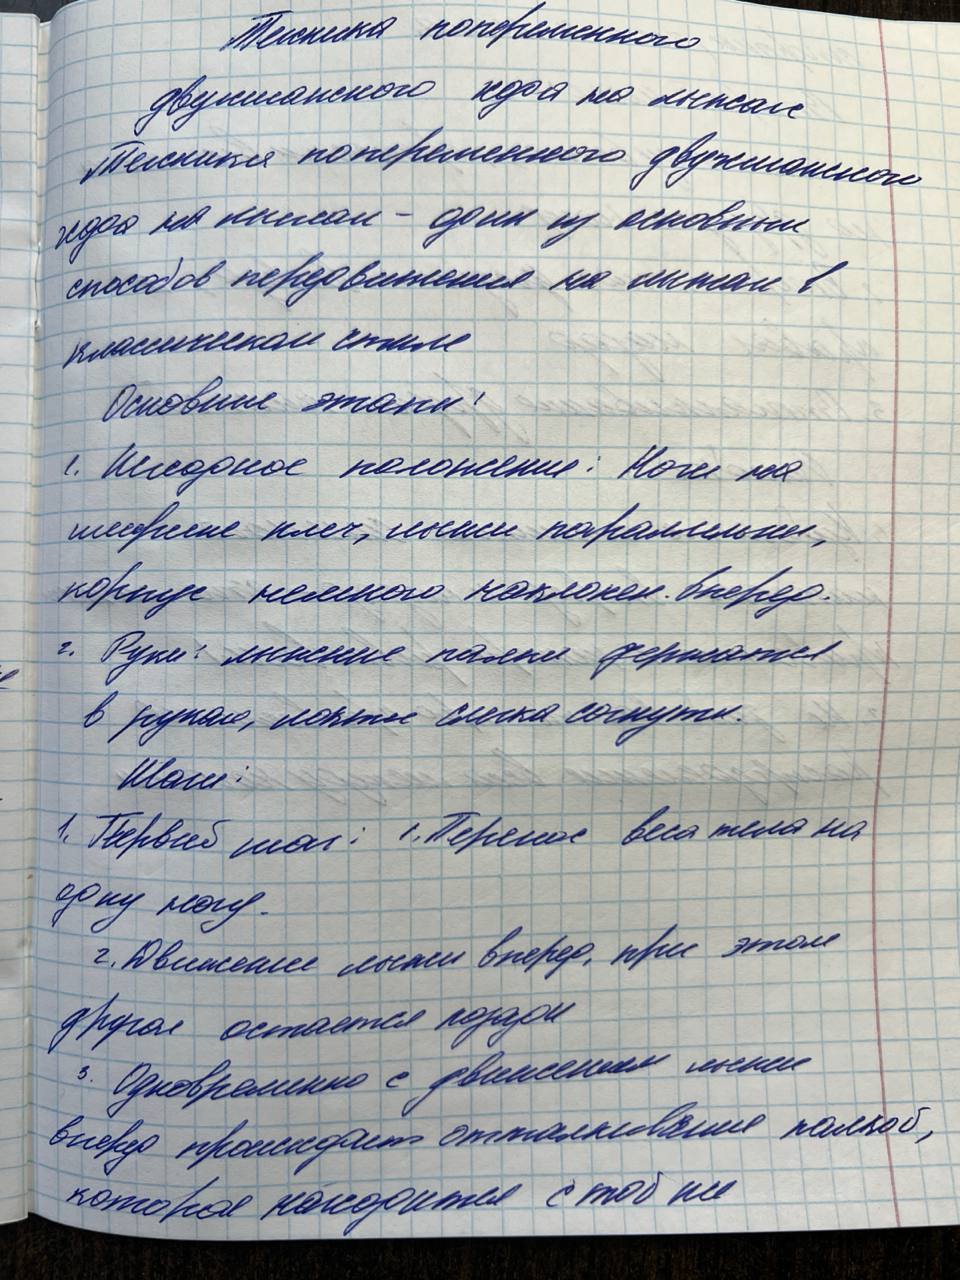 Техника попеременного
двухшажного хода на лыжах
Техника попеременного двухшажного
хода на лыжах – один из основных
способов передвижения на лыжах в
классическом стиле
Основные этапы:
1. Исходное положение: Ноги на
ширине плеч, лыжи параллельны,
корпус немного наклонен вперед.
2. Руки: лыжные палки держатся
в руках, локти слегка согнуты.
Шаги:
1. Первый шаг: 1. Перенос веса тела на
одну ногу.
2. Движение лыжи вперед, при этом
другая остается позади
3. Одновременно с движением лыжи
вперед происходит отталкивание палкой,
которая находится с той же